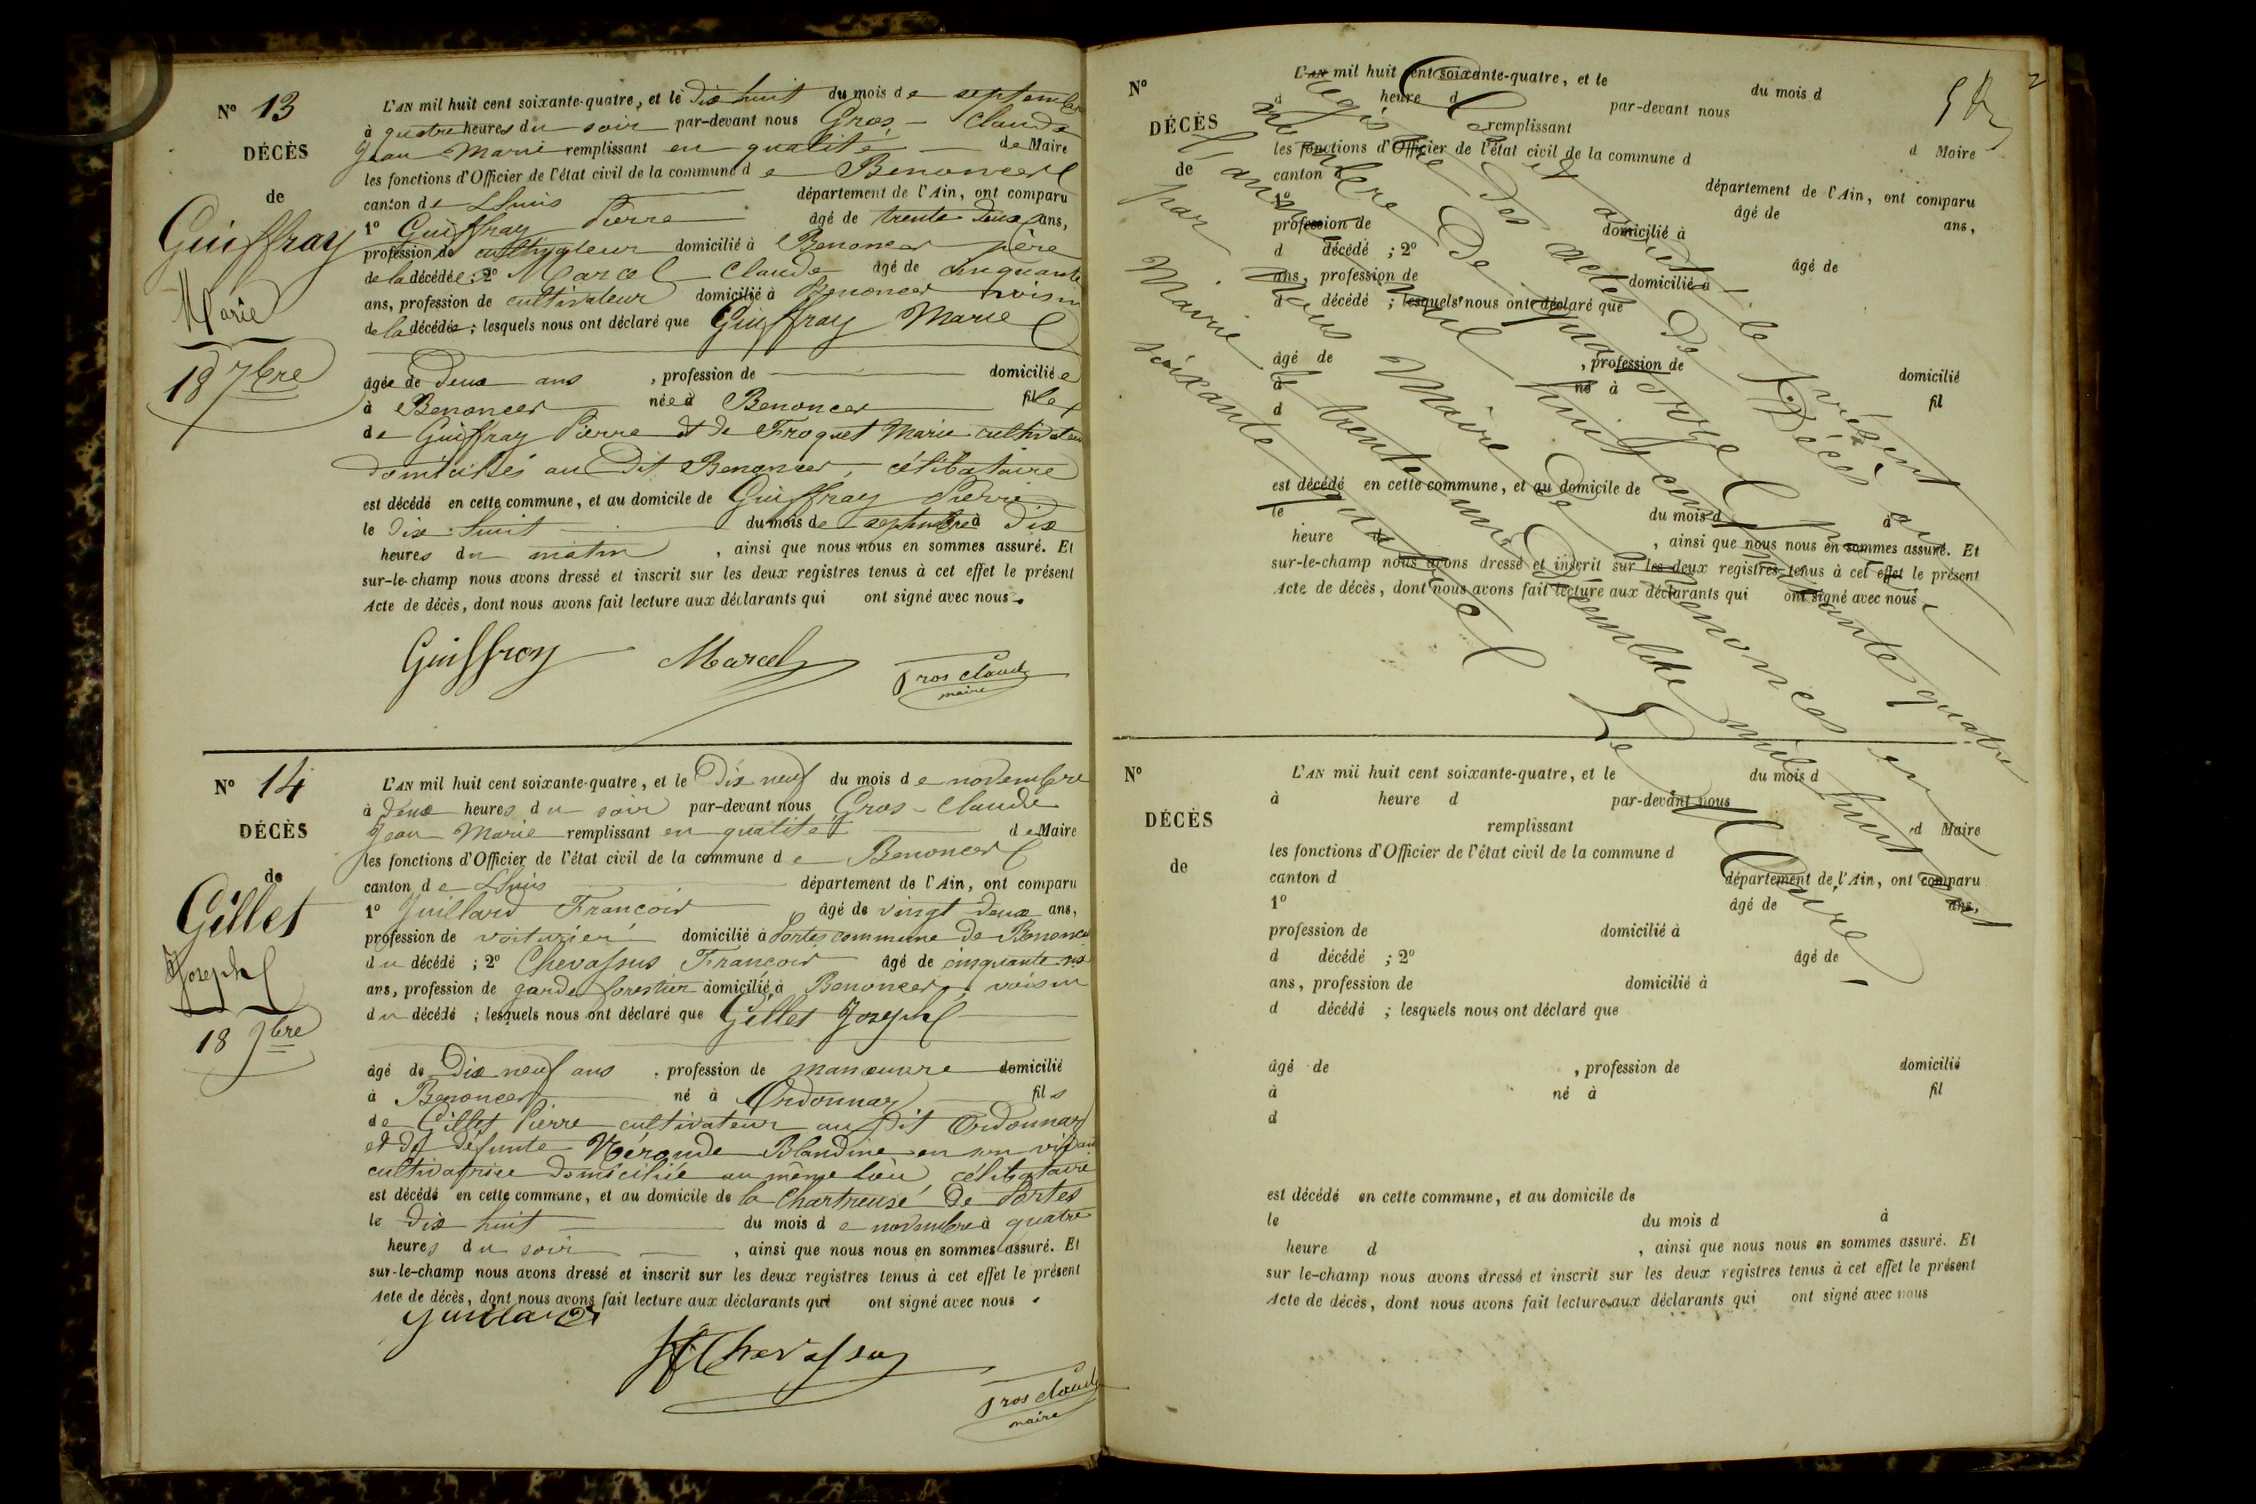 N° 13
DÉCÈS
de
Guiffray
Marie
18 7bre
L'AN mil huit cent soixante-quatre, et le dix huit du mois de septembre
à quatre heures du soir par-devant nous Gros-Claude
Jean Marie remplissant en qualité de Maire
les fonctions d'Officier de l'état civil de la commune de Benonces
canton de Lhuis département de l'Ain, ont comparu
1° Guiffray Pierre âgé de trente deux ans,
profession de cultivateur domicilié à Benonces père
de la décédée ; 2° Marcel Claude âgé de cinquante
ans, profession de cultivateur domicilié à Benonces voisin
de la décédée ; lesquels nous ont déclaré que Guiffray Marie
âgée de Deux ans , profession de domiciliée
à Benonces née à Benonces fille
de Guiffray Pierre et de Froquet Marie cultivateurs
domiciliés au Dit Benonces, célibataire
est décédé en cette commune, et au domicile de Guiffray Pierre
le dix huit du mois de septembre à dix
heures du matin , ainsi que nous nous en sommes assuré. Et
sur-le-champ nous avons dressé et inscrit sur les deux registres tenus à cet effet le présent
Acte de décès, dont nous avons fait lecture aux déclarants qui ont signé avec nous.
Guiffray Marcel Gros claude
maire
N° 14
DÉCÈS
de
Gillet
Joseph
18 9bre
L'AN mil huit cent soixante-quatre, et le Dix neuf du mois de novembre
à deux heures du soir par-devant nous Gros-Claude
Jean Marie remplissant en qualité de Maire
les fonctions d'Officier de l'état civil de la commune de Benonces
canton de Lhuis département de l'Ain, ont comparu
1° Juillard François âgé de vingt deux ans,
profession de voiturier domicilié à Portes commune de Benonces
du décédé ; 2° Chevassus François âgé de cinquante six
ans, profession de garde forestier domicilié à Benonces, voisin
du décédé ; lesquels nous ont déclaré que Gillet Joseph
âgé de Dix neuf ans , profession de manœuvre domicilié
à Benonces né à Ordonnaz fils
de Gillet Pierre cultivateur au dit Ordonnaz
et de défunte Blandine en son vivant
cultivatrice domiciliée au même lieu, célibataire
est décédé en cette commune, et au domicile de la Chartreuse De Portes
le dix huit du mois de novembre à quatre
heures du soir , ainsi que nous nous en sommes assuré. Et
sur-le-champ nous avons dressé et inscrit sur les deux registres tenus à cet effet le présent
Acte de décès, dont nous avons fait lecture aux déclarants qui ont signé avec nous.
Juillard
Chevassus
Gros claude
maire
N°
DÉCÈS
de
L'AN mil huit cent soixante-quatre, et le du mois d
à heure d par-devant nous
remplissant d Maire
les fonctions d'Officier de l'état civil de la commune d
canton d département de l'Ain, ont comparu
1° âgé de ans,
profession de domicilié à
d décédé ; 2° âgé de
ans, profession de domicilié à
d décédé ; lesquels nous ont déclaré que
âgé de , profession de domicilié
à né à fil
d
est décédé en cette commune, et au domicile de
le du mois d à
heure d , ainsi que nous nous en sommes assuré. Et
sur-le-champ nous avons dressé et inscrit sur les deux registres tenus à cet effet le présent
Acte de décès, dont nous avons fait lecture aux déclarants qui ont signé avec nous
Clos et arrêté le présent
registre des actes de Décès au
nombre de quatorze pour
l'année mil huit cent soixante quatre
par Nous Maire de Benonces en
Mairie le trente un Décembre mil huit cent
soixante quatre
Le Maire
N°
DÉCÈS
de
L'AN mil huit cent soixante-quatre, et le du mois d
à heure d par-devant nous
remplissant d Maire
les fonctions d'Officier de l'état civil de la commune d
canton d département de l'Ain, ont comparu
1° âgé de ans,
profession de domicilié à
d décédé ; 2° âgé de
ans, profession de domicilié à
d décédé ; lesquels nous ont déclaré que
âgé de , profession de domicilié
à né à fil
d
est décédé en cette commune, et au domicile de
le du mois d à
heure d , ainsi que nous nous en sommes assuré. Et
sur le-champ nous avons dressé et inscrit sur les deux registres tenus à cet effet le présent
Acte de décès, dont nous avons fait lecture aux déclarants qui ont signé avec nous